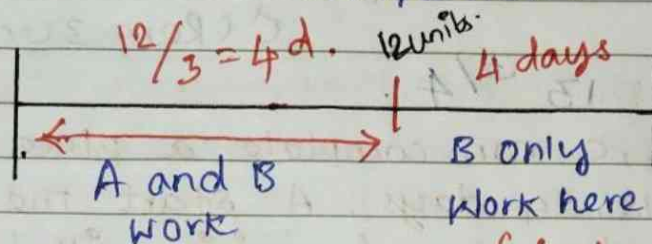 12/3 = 4 d. 12 units. 4 days
A and B
work
B only
work here